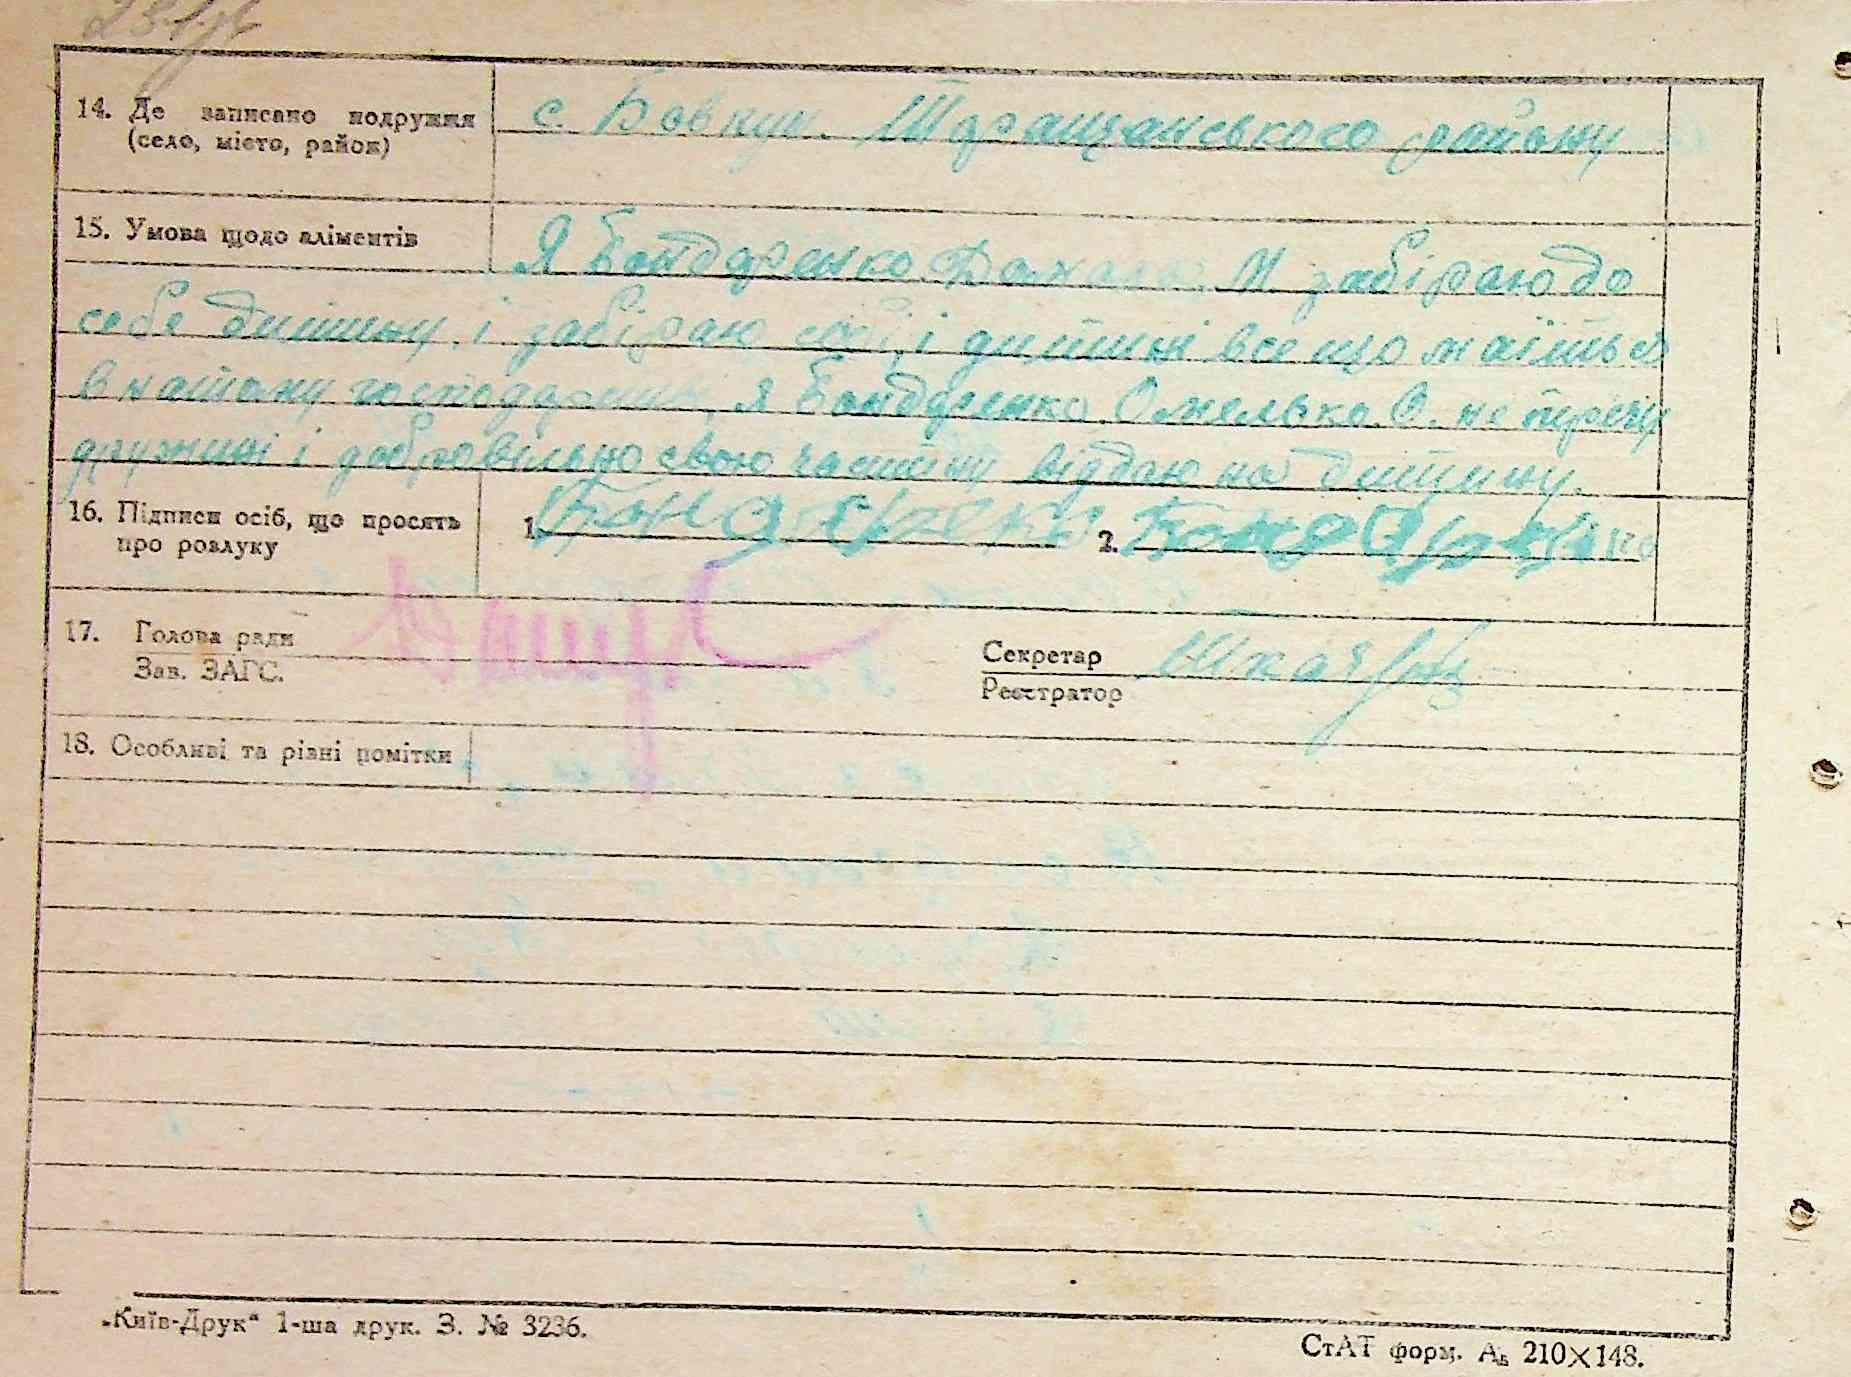 14. Де записано подружжя
(село, місто, район)
с. Бовкун. Таращанського району
15. Умова щодо аліментів
Я Бондаренко М. забіраю до
себе дитину. і забіраю собі, і дитині все що маїться
в нашому я Бондаренко Омелько. О. не пречу
дружині і добровільно свою частину віддаю на дитину.
16. Підписи осіб, що просять
про розлуку
1. Бондаренко 2. Бондаренко
17. Голова ради
Зав. ЗАГС.
Секретар
Реєстратор
18. Особливі та різні помітки
„Київ-Друк“ 1-ша друк. З. № 3236.
СтАТ форм. А₅ 210×148.